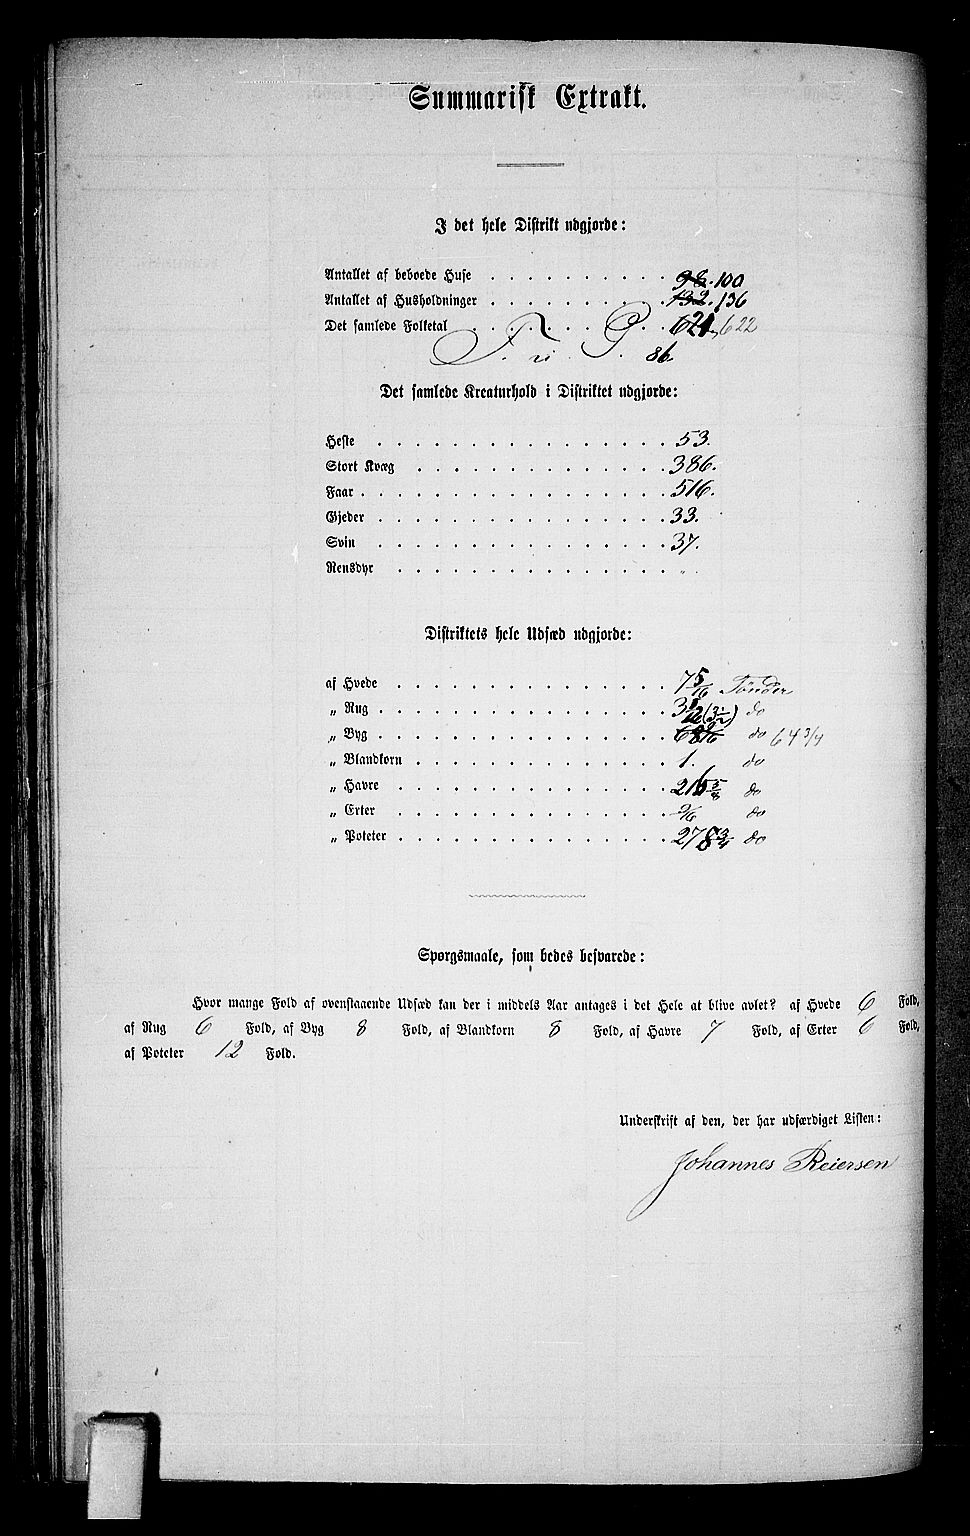 Summarisk Extrakt.
I det hele Distrikt udgjorde:
Antallet af beboede Huse . . . . . . . . . . 98. 100
Antallet af Husholdninger . . . . . . . . . . 132. 136
Det samlede Folketal . . . . . . . . . . 621, 622
86
Det samlede Kreaturhold i Distriktet udgjorde:
Heste . . . . . . . . . . 53.
Stort Kvæg . . . . . . . . . . 386.
Faar . . . . . . . . . . 516.
Gjeder . . . . . . . . . . 33.
Svin . . . . . . . . . . 37.
Rensdyr . . . . . . . . . . „
Distriktets hele Udsæd udgjorde:
af Hvede . . . . . . . . . . 7 5/16 Tönder
„ Rug . . . . . . . . . . (3 1/2) do
„ Byg . . . . . . . . . . do 64 3/4
„ Blandkorn . . . . . . . . . . 1. do
„ Havre . . . . . . . . . . do
„ Erter . . . . . . . . . . do
„ Poteter . . . . . . . . . . 278 3/4 do
Spørgsmaale, som bedes besvarede:
Hvor mange Fold af ovenstaaende Udsæd kan der i middels Aar antages i det Hele at blive avlet? af Hvede 6 Fold,
af Rug 6 Fold, af Byg 8 Fold, af Blandkorn 8 Fold, af Havre 7 Fold, af Erter 6 Fold,
af Poteter 12 Fold.
Underskrift af den, der har udfærdiget Listen:
Johannes Reiersen